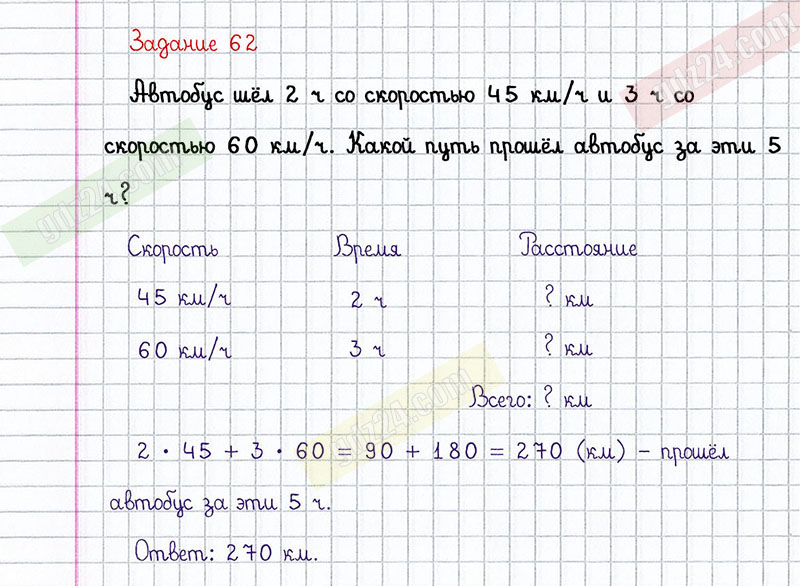 Задание 62
Автобус шёл 2 ч со скоростью 45 км/ч и 3 ч со
скоростью 60 км/ч. Какой путь прошёл автобус за эти 5
ч?
Скорость Время Расстояние
45 км/ч 2 ч ? км
60 км/ч 3 ч ? км
Всего: ? км
2 · 45 + 3 · 60 = 90 + 180 = 270 (км) – прошёл
автобус за эти 5 ч.
Ответ: 270 км.
gdz24.com
gdz24.com
gdz24.com